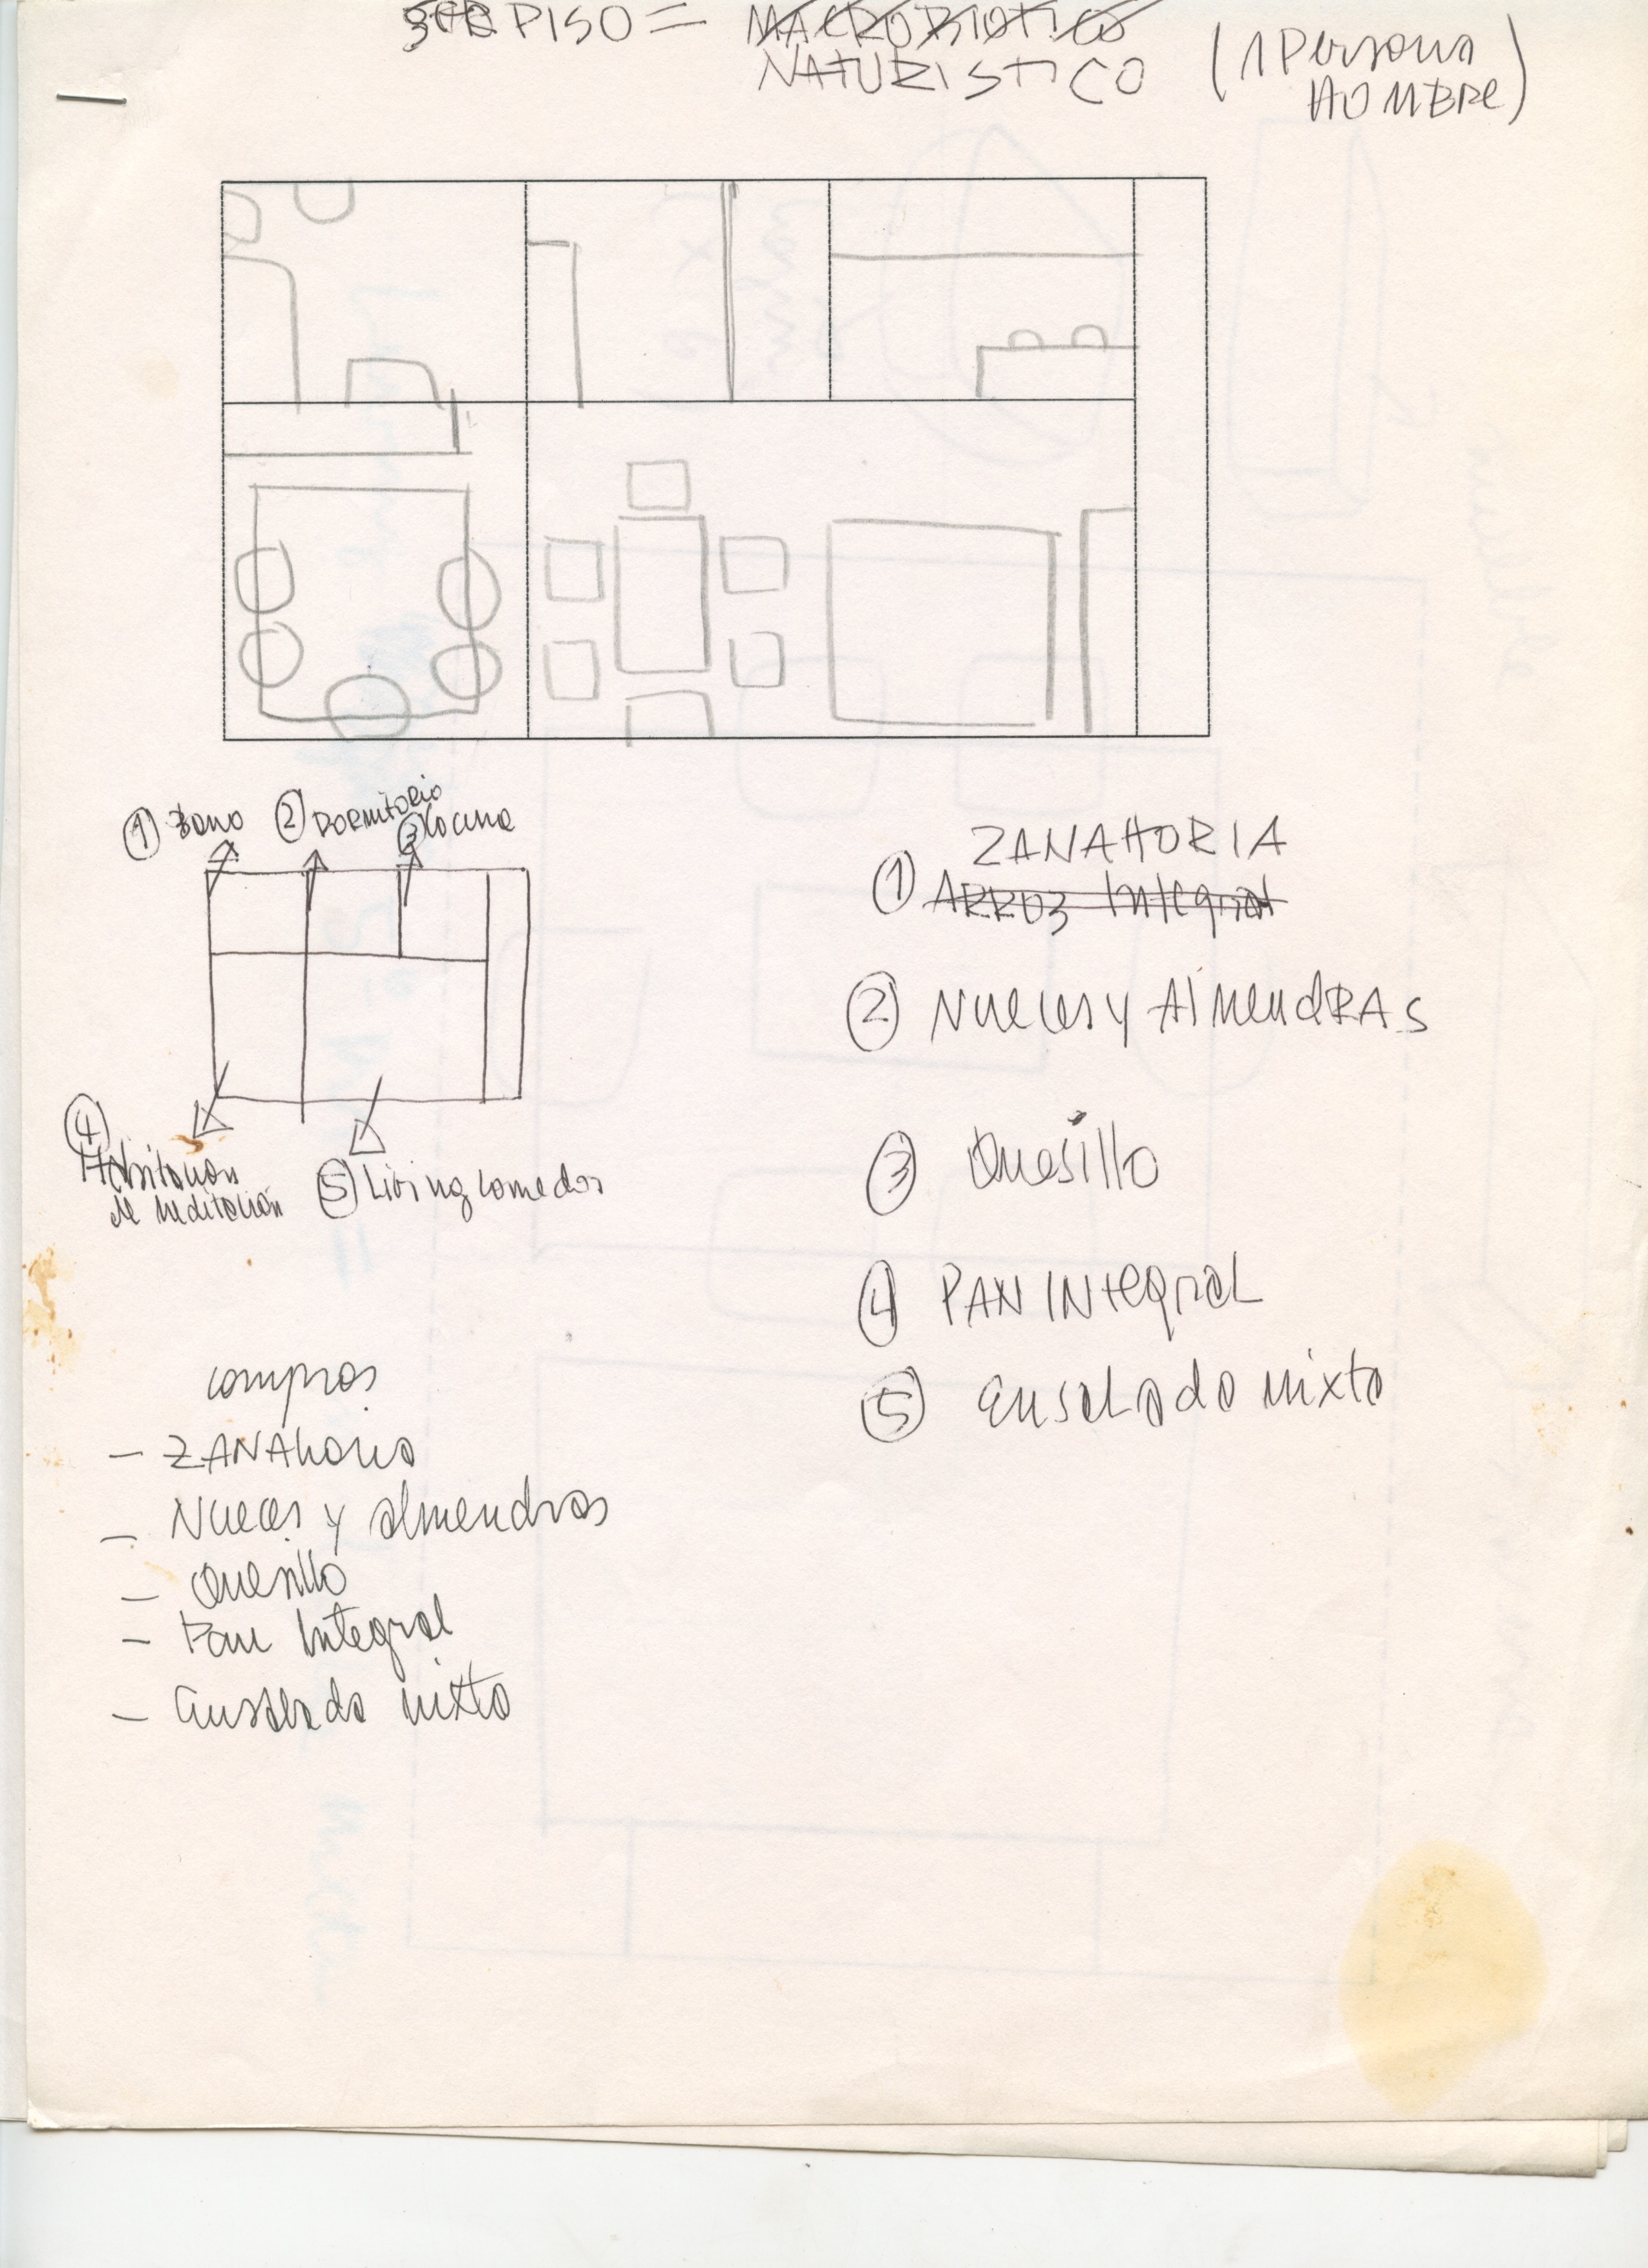 3ER PISO = MACROBIOTICO
NATURISTICO
(1 Persona
HOMBRE)
① Baño
② DORMITORIO
③ Cocina
④
Habitacion
de meditación
⑤ Living comedor
ZANAHORIA
① ARROZ Integral
② Nueces y AlmendRAS
③ Quesillo
④ PAN INtegral
⑤ Ensalada mixta
compras
- ZANAhoria
- Nueces y almendras
- Quesillo
- Pan Integral
- Ensalada mixta